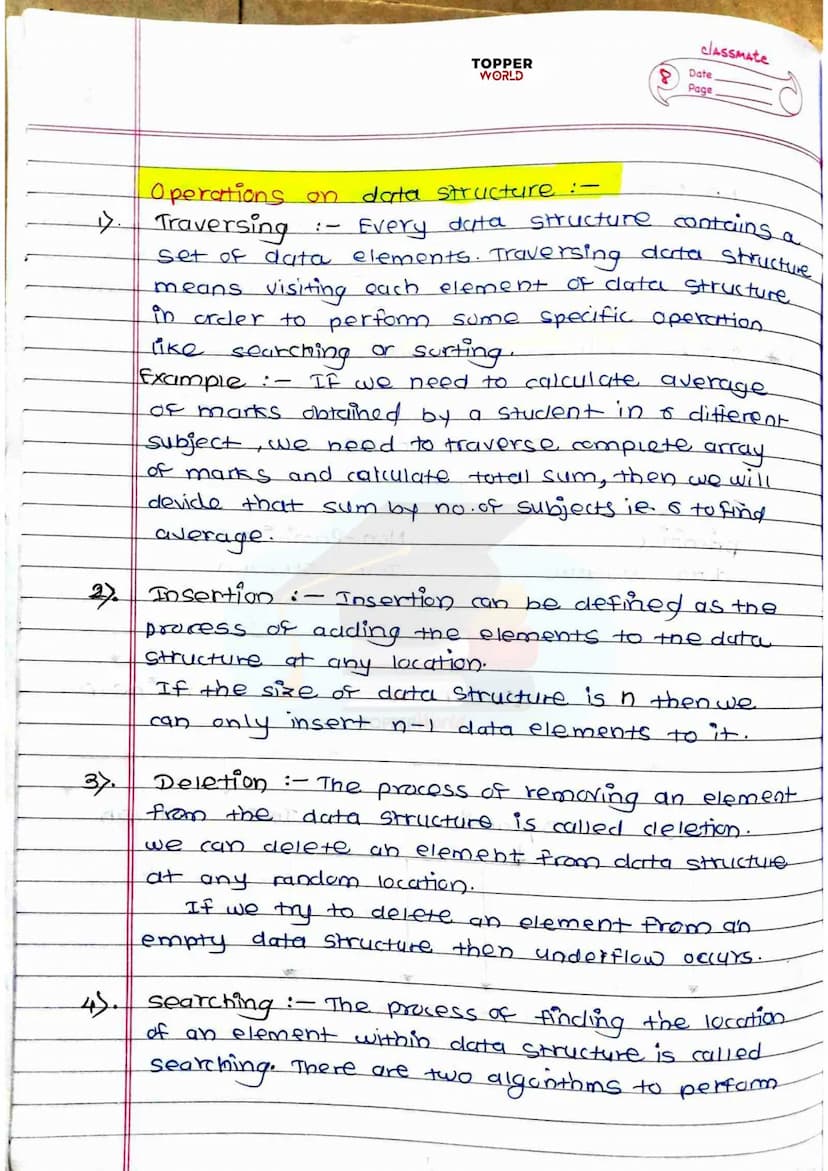 TOPPER
WORLD
classmate
8
Date
Page
Operations on data structure :-
1). Traversing :- Every data structure contains a
set of data elements. Traversing data structure
means visiting each element of data structure
in order to perform some specific operation
like searching or sorting.
Example :- If we need to calculate average
of marks obtained by a student in 6 different
subject, we need to traverse complete array
of marks and calculate total sum, then we will
devide that sum by no. of subjects ie. 6 to find
average.
2). Insertion :- Insertion can be defined as the
process of adding the elements to the data
structure at any location.
If the size of data structure is n then we
can only insert n-1 data elements to it.
3). Deletion :- The process of removing an element
from the data structure is called deletion.
we can delete an element from data structure
at any random location.
If we try to delete an element from an
empty data structure then underflow occurs.
4). Searching :- The process of finding the location
of an element within data structure is called
searching. There are two algorithms to perform